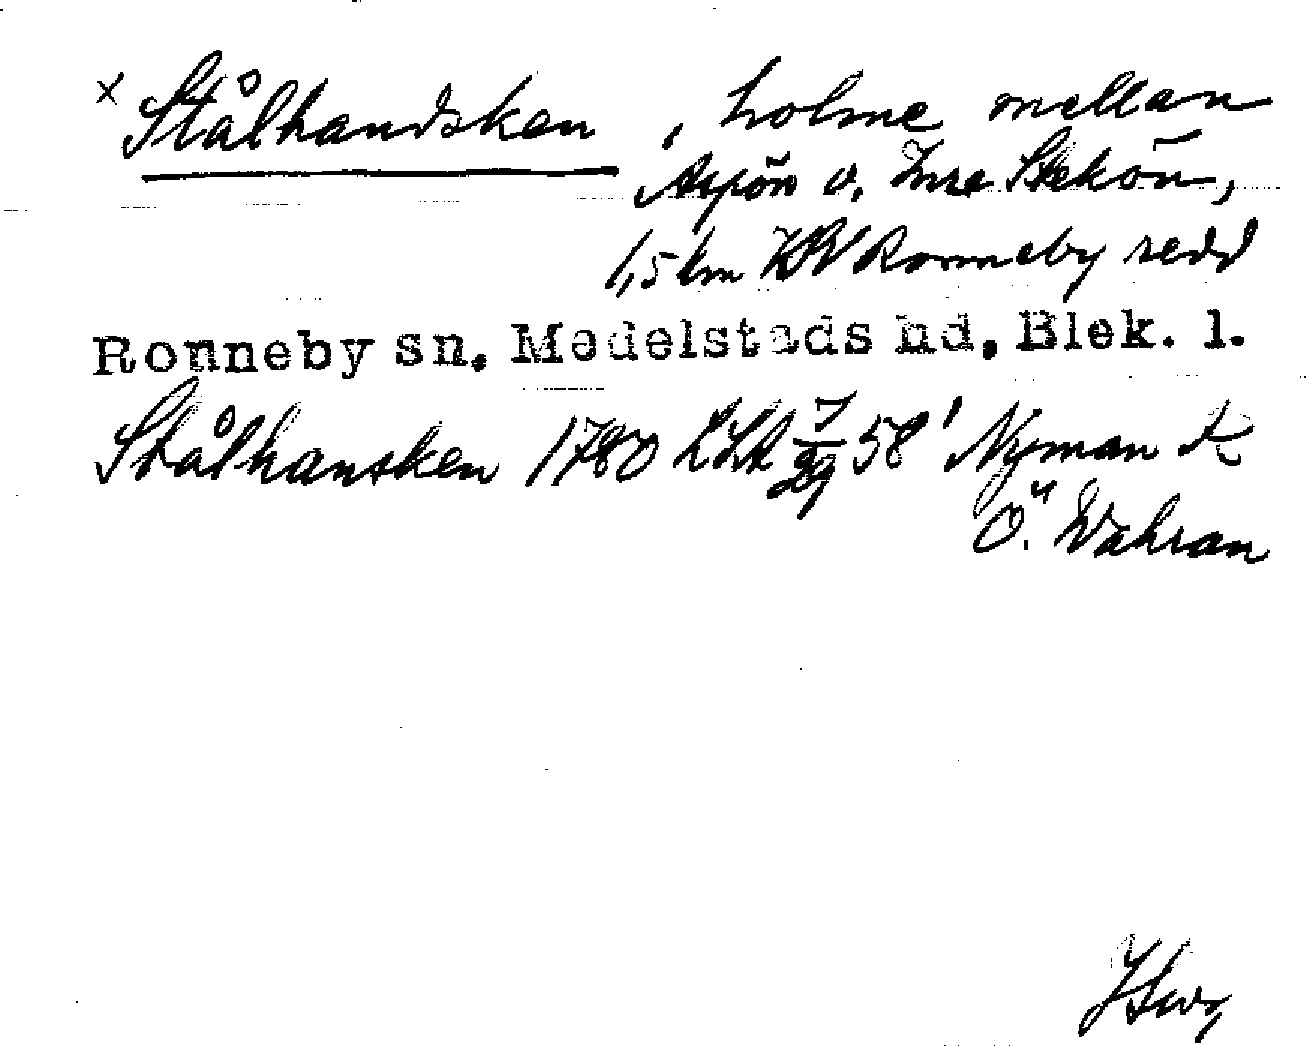 x Stålhandsken, holme mellan
Aspön o. Inre Stekön,
1,5 km VSV Ronneby redd
Ronneby sn, Medelstads hd, Blek. l.
Stålhansken 1780 LSA 58' Nyman K
Ö. Vahran